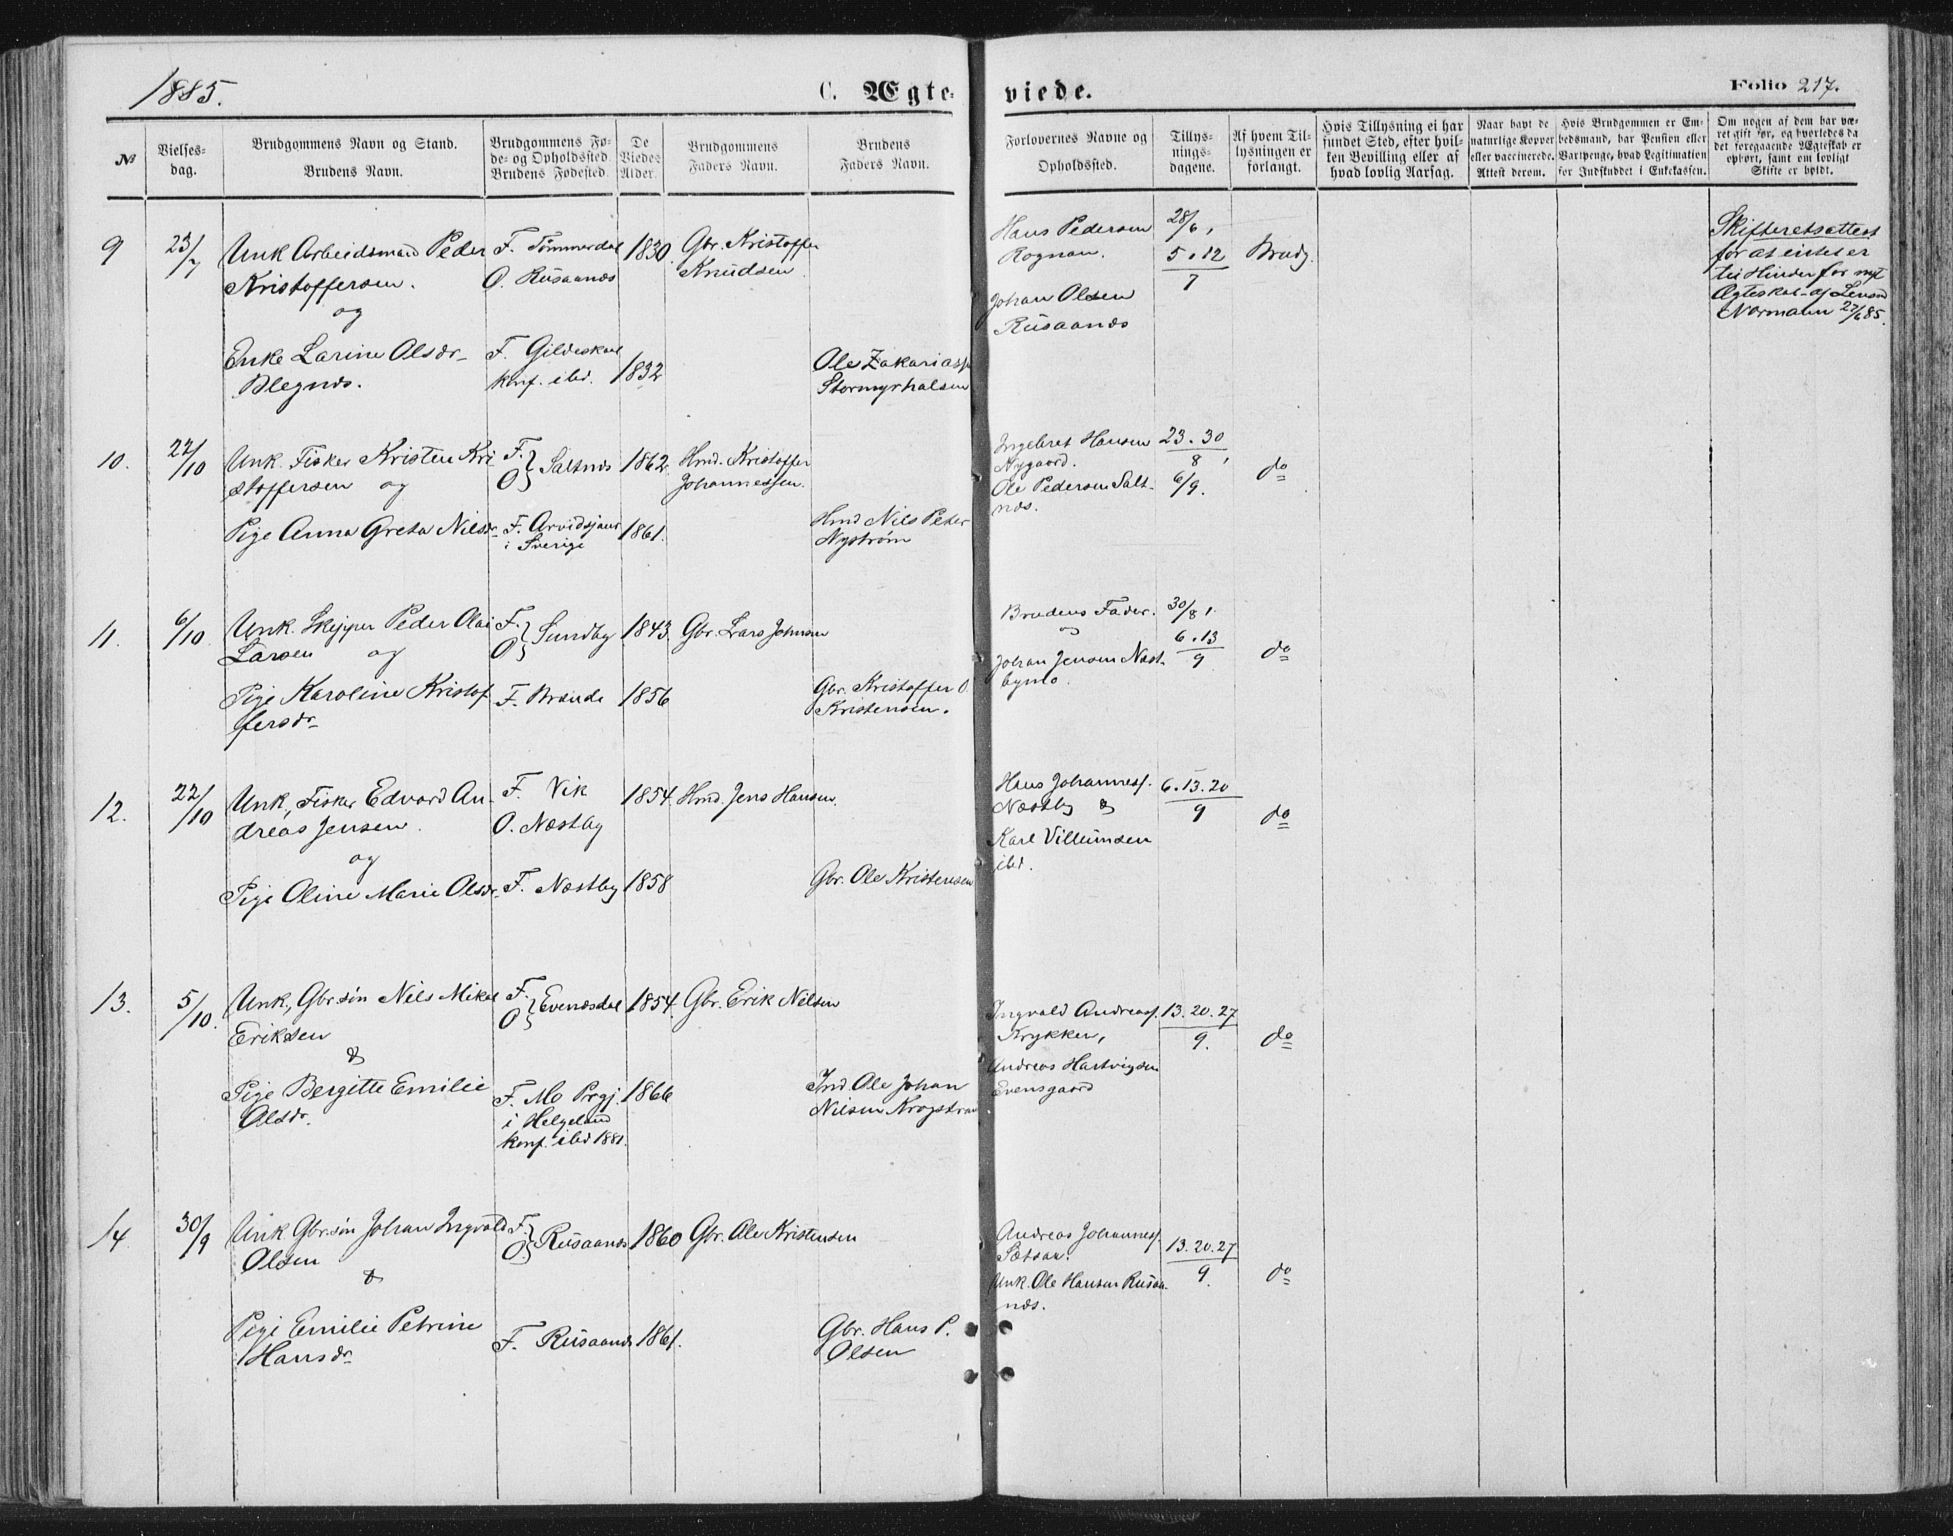 1885.
C. Ægte-
viede.
Folio 217.
№
Vielses-
dag.
Brudgommens Navn og Stand.
Brudens Navn.
Brudgommens Fø-
de- og Opholdssted.
Brudens Fødested.
De
Viedes
Alder.
Brudgommens
Faders Navn.
Brudens
Faders Navn.
Forlovernes Navne og
Opholdssted.
Tillys-
nings-
dagene.
Af hvem Til-
lysningen er
forlangt.
Hvis Tillysning ei har
fundet Sted, efter hvil-
ken Bevilling eller af
hvad lovlig Aarsag.
Naar havt de
naturlige Kopper
eller vaccinerede.
Attest derom.
Hvis Brudgommen er Em-
bedsmand, har Pension eller
Vartpenge, hvad Legitimation
for Indskuddet i Enkekassen.
Om nogen af dem har væ-
ret gift før, og hvorledes da
det foregaaende Ægteskab er
ophørt, samt om lovligt
Skifte er holdt.
9
23/7
Unk Arbeidsmand Peder
Kristoffersen.
og
Enke Larine Olsdr
Blegnes.
F. Tømmerdal
O. Rusaanes
F. Gildeskaal
konf. ibd.
1830.
1832
Gbr. Kristoffer
Knudsen
Ole Zakariass
Stormyrhalsen
Hans Pedersen
Rognan.
Johan Olsen
Rusaanes
28/6,
5.12
7
Brudg.
Skifteretsattest
for at intet er
til Hinder for nyt
Ægteskab af Lensm
Normann 22/6 85.
10.
22/10
Unk. Fisker Kristen Kri
stoffersen og
Pige Anna Greta Nilsdr
F.
O } Saltnes
F. Arvidsjaur
i Sverige
1862
1861.
Hmd. Kristoffer
Johannessen.
Hmd Nils Peter
Nystrøm
Ingebret Hansen
Nygaard.
Ole Pedersen Salt-
nes.
23.30
8,
6/9.
do
11.
6/10
Unk. Skipper Peder Olai
Larsen og
Pige Karoline Kristof
fersdr
F.
O } Sundby
F. Brænde
1843.
1856
Gbr. Lars Johnsen
Gbr. Kristoffer O.
Kristensen.
Brudens Fader.
og
Johan Jensen Næst-
bymo.
30/8,
6.13
9
do
12.
22/10
Unk, Fisker Edvard An-
dreas Jensen.
og
Pige Oline Marie Olsdr.
F. Vik
O. Næstby
F. Næstby
1854.
1858
Hmd. Jens Hansen.
Gbr. Ole Kristensen
Hans Johanness.
Næstby &
Karl Villumsen
ibd.
6.13.20
9
do
13.
5/10.
Unk, Gbr.søn Nils Mikal
Eriksen
&
Pige Bergitte Emilie
Olsdr.
F.
O } Evenesdal
F. Mo Prgj.
i Helgeland
konf. ibd 1881.
1854.
1866
Gbr. Erik Nilsen
Ind. Ole Johan
Nilsen Krogstran
Ingvald Andreass.
Krykken,
Andreas Hartvigsen
Evensgaard
13.20.27
9.
do
14
30/9
Unk Gbr.søn Johan Ingvald
Olsen
&
Pige Emilie Petrine
Hansdr
F.
O } Rusaanes
F. Rusaanes
1860
1861.
Gbr. Ole Kristensen
Gbr. Hans P.
Olsen
Andreas Johanness.
Sætsaa.
Unk. Ole Hansen Rusaa-
nes.
13.20.27
9.
do